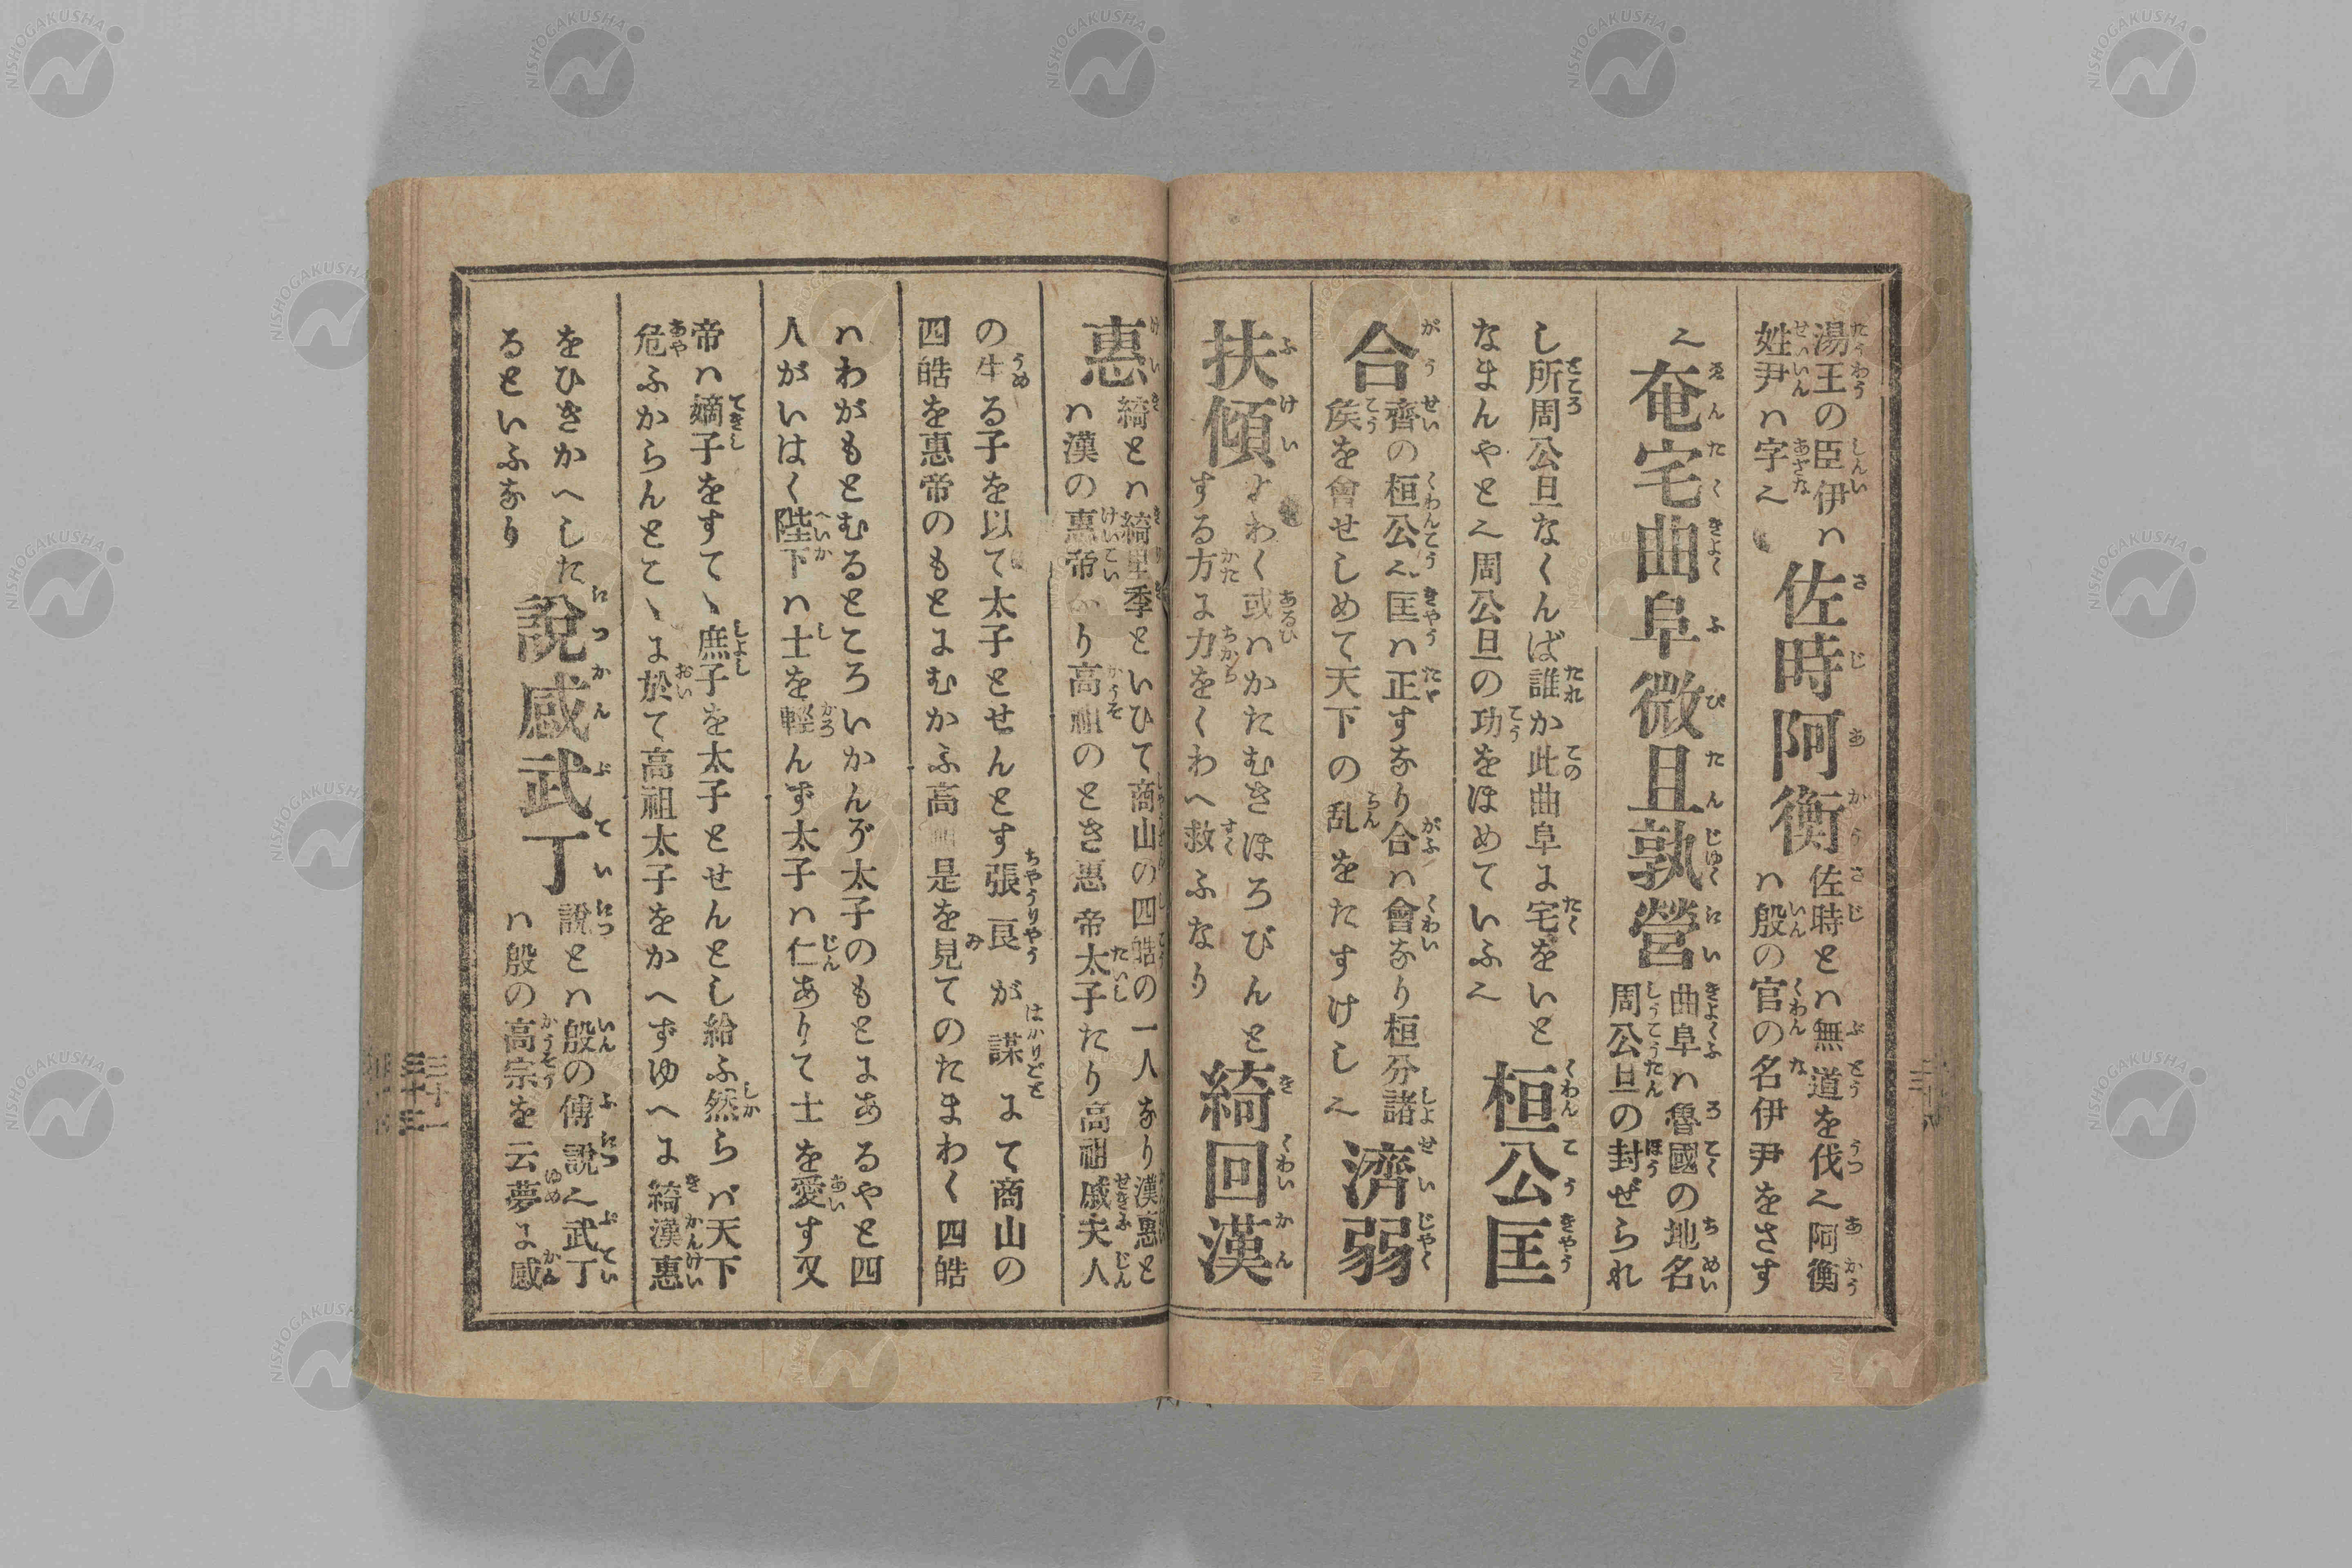 湯王の臣伊ハ
姓尹ハ字〻
佐時阿衡
佐時とハ無道を伐〻阿衡
ハ殷の官の名伊尹をさす
〻
奄宅曲阜微旦孰營
曲阜ハ魯國の地名
周公旦の封ぜられ
し所周公旦なくんば誰か此曲阜に宅をいと
なまんやと〻周公旦の功をほめていふ〻
桓公匡
合
齊の桓公〻匡ハ正すなり合ハ會なり桓分諸
矦を會せしめて天下の乱をたすけし〻
濟弱
扶傾
よわく或ハかたむきほろびんと
する方に力をくわへ救ふなり
綺回漢
惠
綺とハ綺里季といひて商山の四皓の一人なり漢惠と
ハ漢の惠帝なり高祖のとき惠帝太子たり高祖戚夫人
の生る子を以て太子とせんとす張良が謀にて商山の
四皓を惠帝のもとにむかふ高是を見てのたまわく四皓
ハわがもとむるところいかんぞ太子のもとにあるやと四
人がいはく陛下ハ士を輕んず太子ハ仁ありて士を愛す又
帝ハ嫡子をすてゝ庶子を太子とせんとし給ふ然らバ天下
危ふからんとこゝに於て高祖太子をかへずゆへに綺漢惠
をひきかへした
るといふなり
說感武丁
說とハ殷の傅說〻武丁
ハ殷の高宗を云夢に感